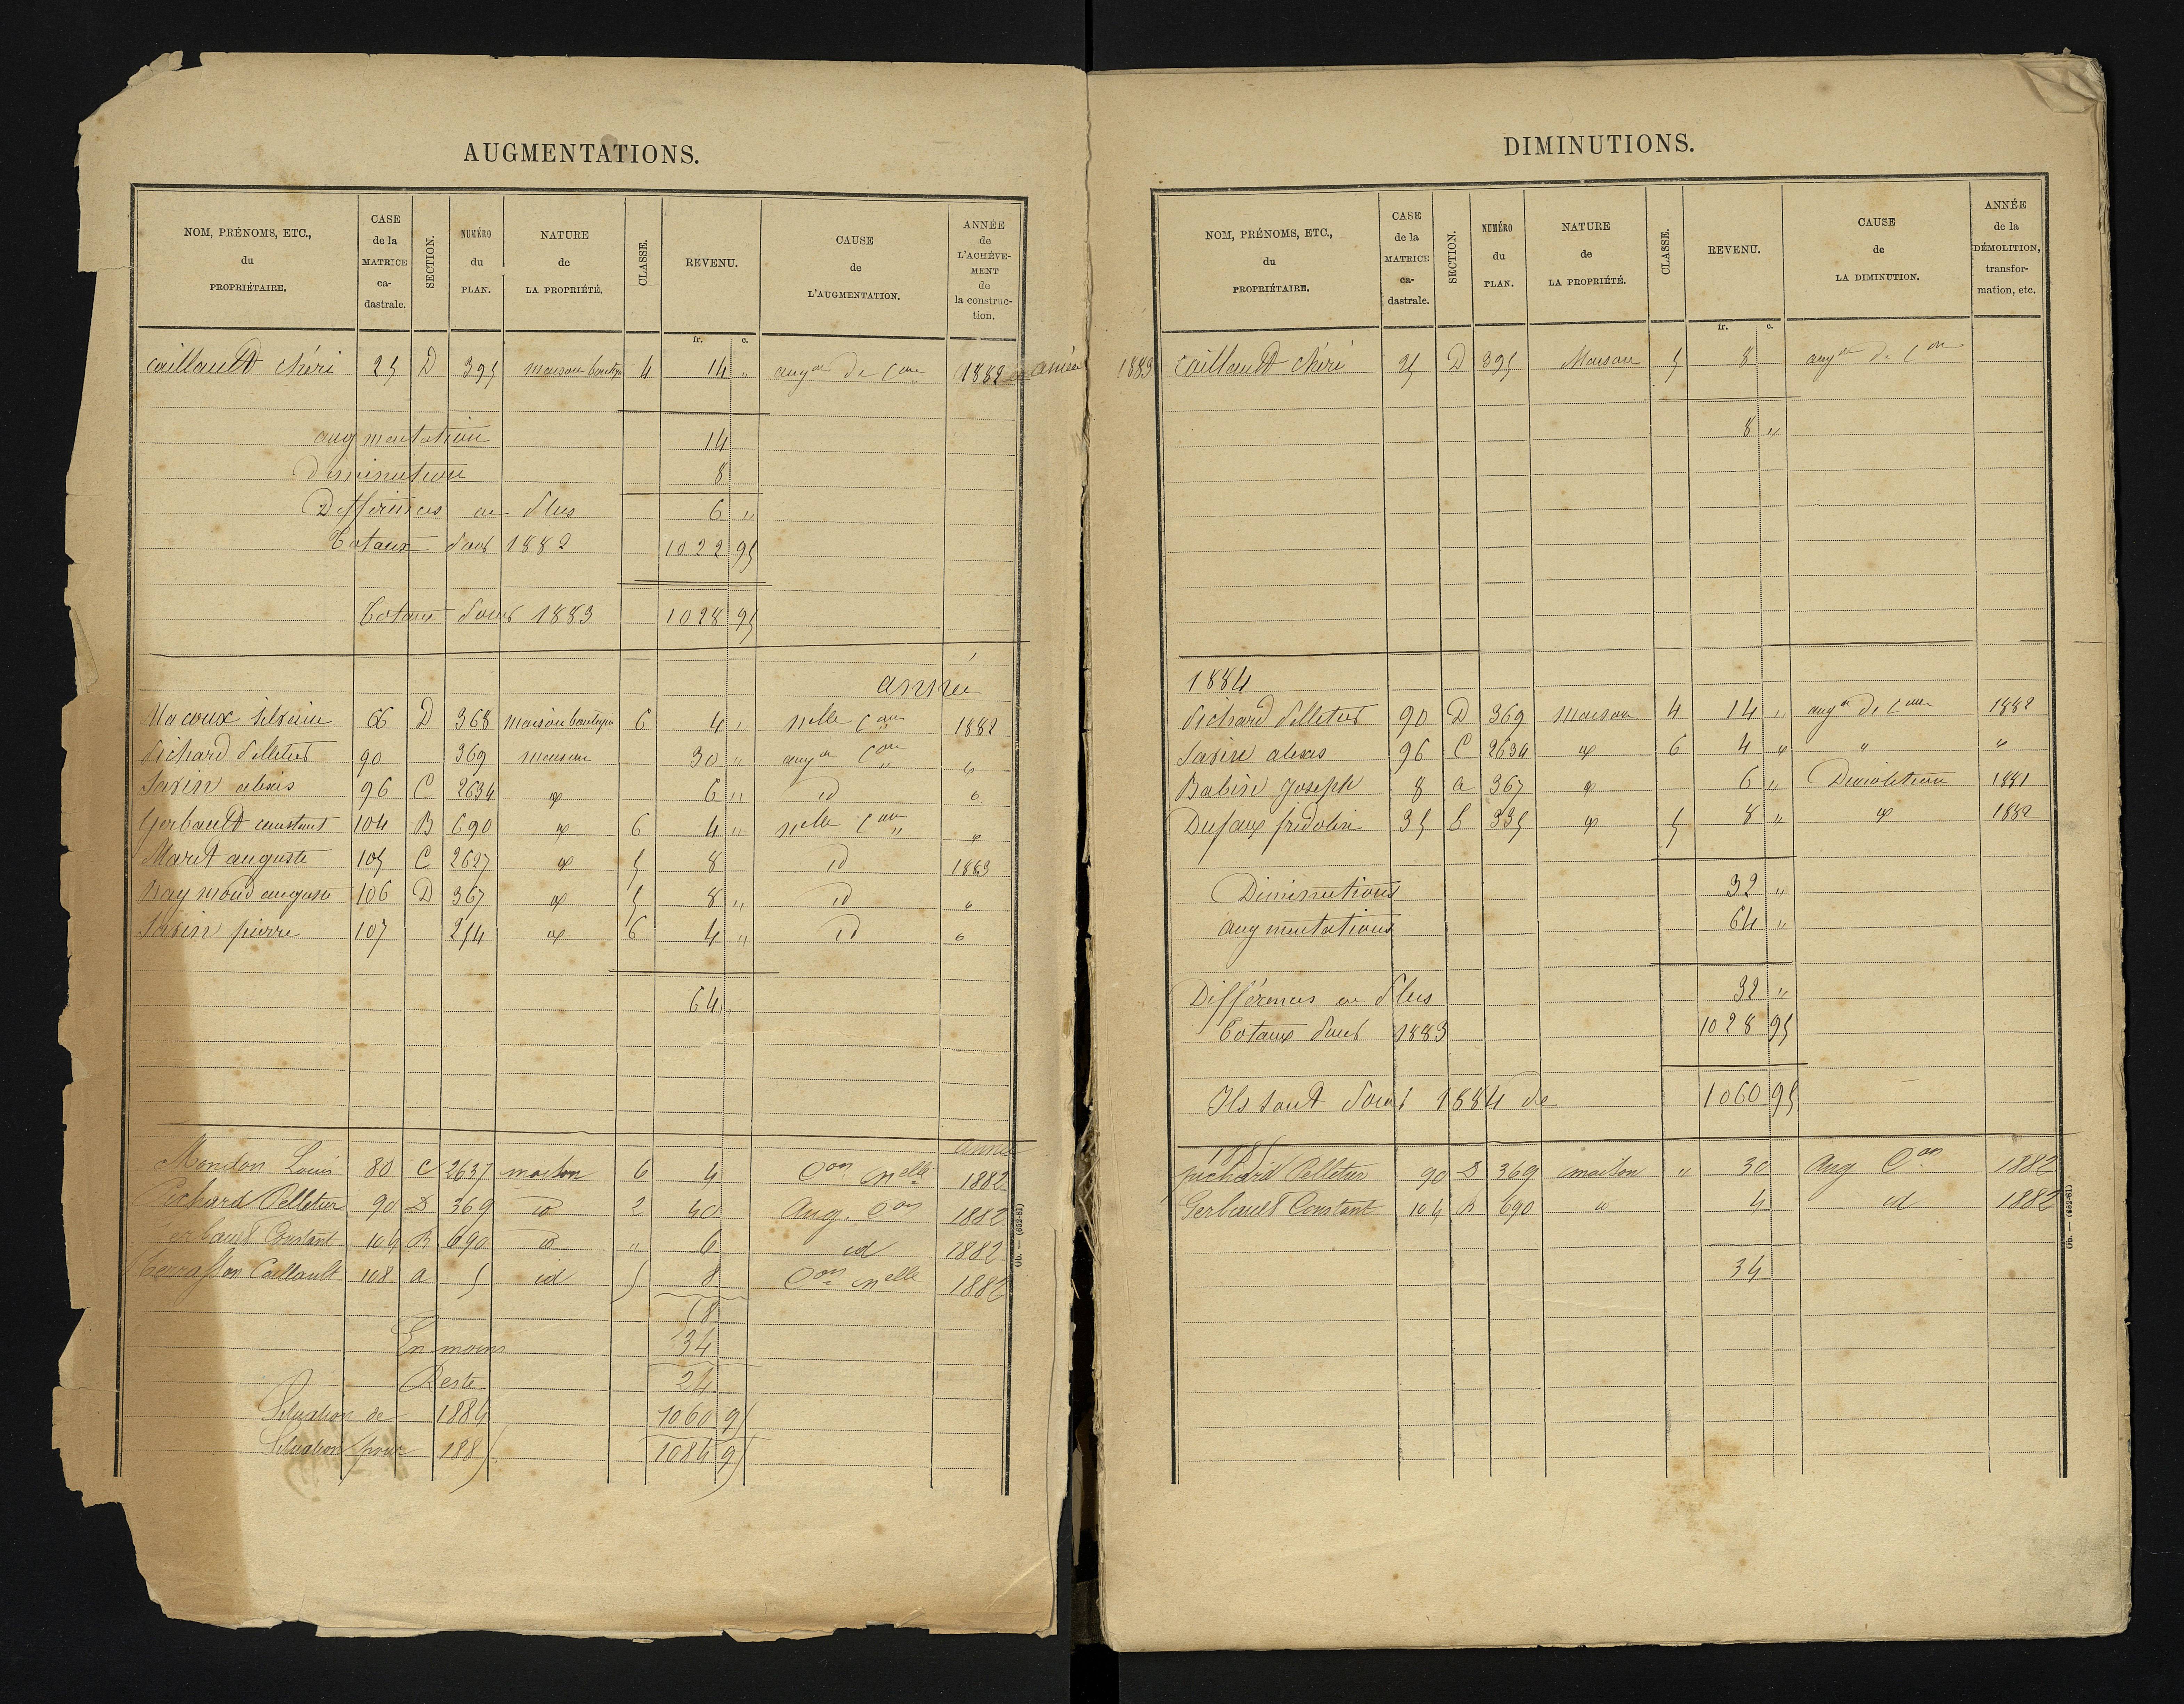 AUGMENTATIONS.
NOM, PRÉNOMS, ETC., du PROPRIÉTAIRE.
CASE de la MATRICE ca-dastrale.
SECTION.
NUMÉRO du PLAN.
NATURE de LA PROPRIÉTÉ.
CLASSE.
REVENU.
CAUSE de L'AUGMENTATION.
ANNÉE de L'ACHÈVE-MENT de la construc-tion.
fr. c.
Caillault chéri 25 D 395 maison 4 14 " augon de Con 1882 année
augmentation 14
Diminution 8
Différences en plus 6 "
Totaux pour 1882 1022 95
Totaux pour 1883 1028 95
année
silvain 66 D 368 maison 6 4 " nelle Con 1882
Pichard Pelletier 90 369 maison 30 " augon Con "
Savin alexis 96 C 2634 " 6 " id "
Gerbault constant 104 B 690 " 6 4 " nelle Con "
Maret auguste 105 C 2627 " 5 8 id 1883
Raymond auguste 106 D 367 " 5 8 " id "
Savin pierre 107 254 " 6 4 " id "
64 "
année
Mondon Louis 80 C 2637 maison 6 4 Con nelle 1882
Pichard Pelletier 90 D 369 id 2 40 Aug. Con 1882
Gerbault Constant 104 B 690 id " 6 id 1882
Caillault 108 a 5 id 5 8 Con nelle 1882
58
En moins 34
Reste 24
Situation de 1884 1060 95
Situation pour 1885 1084 95
Ob. — (652-81)
DIMINUTIONS.
NOM, PRÉNOMS, ETC., du PROPRIÉTAIRE.
CASE de la MATRICE ca-dastrale.
SECTION.
NUMÉRO du PLAN.
NATURE de LA PROPRIÉTÉ.
CLASSE.
REVENU.
CAUSE de LA DIMINUTION.
ANNÉE de la DÉMOLITION, transfor-mation, etc.
fr. c.
1883 Caillault Chéri 25 D 395 Maison 5 8 augon de Con
8 "
1884
Pichard Pelletier 90 D 369 maison 4 14 " augon de Con 1882
Savin alexis 96 C 2634 " 6 4 " " "
Babin Joseph 8 a 367 " 6 " Démolition 1881
Dufaux fridolin 35 b 335 " 5 8 " " 1882
Diminutions 32 "
augmentations 64 "
Différences en plus 32 "
Totaux pour 1883 1028 95
Ils sont pour 1884 de 1060 95
1885
pichard Pelletier 90 D 369 maison " 30 Aug Con 1882
Gerbault Constant 104 B 690 " 4 id 1882
34
Ob. — (652-81)